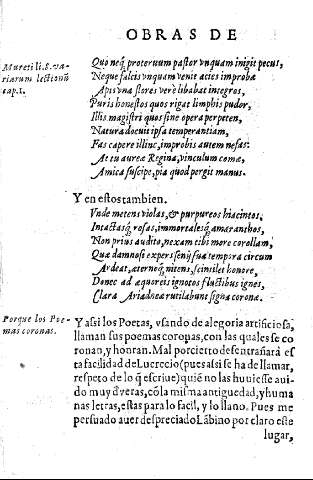 OBRAS DE
Mureti li. 8. va-
riarum lectionũ
cap. 1.
Quo neq; proteruum pastor vnquam inigit pecus,
Neque falcis vnquam venit acies improbæ
Apis vna flores vere libabat integros,
Puris honestos quos rigat limphis pudor,
Illis magistri quos sine opera perpeten,
Natura docuit ipsa temperantiam,
Fas capere illinc, improbis autem nefas:
At tu aureæ Regina, vinculum comæ,
Amica suscipe, pia quod pergit manus.
Y en estos tambien.
Vnde metens violas, & purpureos hiacintos,
Intactasq; rosas, immortalesq; amaranthos,
Non prius audito, nexam tibi more corollam,
Quæ damnosi expers senij sua tempora circum
Ardeat, æternoq; nitens, scintilet honore,
Donec ad æquoreis ignotos fluctibus ignes,
Clara Ariadneæ rutilabunt signa coronæ.
Porque los Poe-
mas coronas.
Y assi los Poetas, vsando de alegoria artificiosa,
llaman sus poemas coronas, con las quales se co
ronan, y honran. Mal por cierto desentrañará es
ta facilidad de Lucrecio (pues assi se ha de llamar,
respeto de lo q̃ escriue) quiẽ no las huuiesse aui-
do muy d'veras, cõ la misma antiguedad, y huma
nas letras, estas para lo facil, y lo llano. Pues me
persuado auer despreciado Lãbino por claro este
lugar,